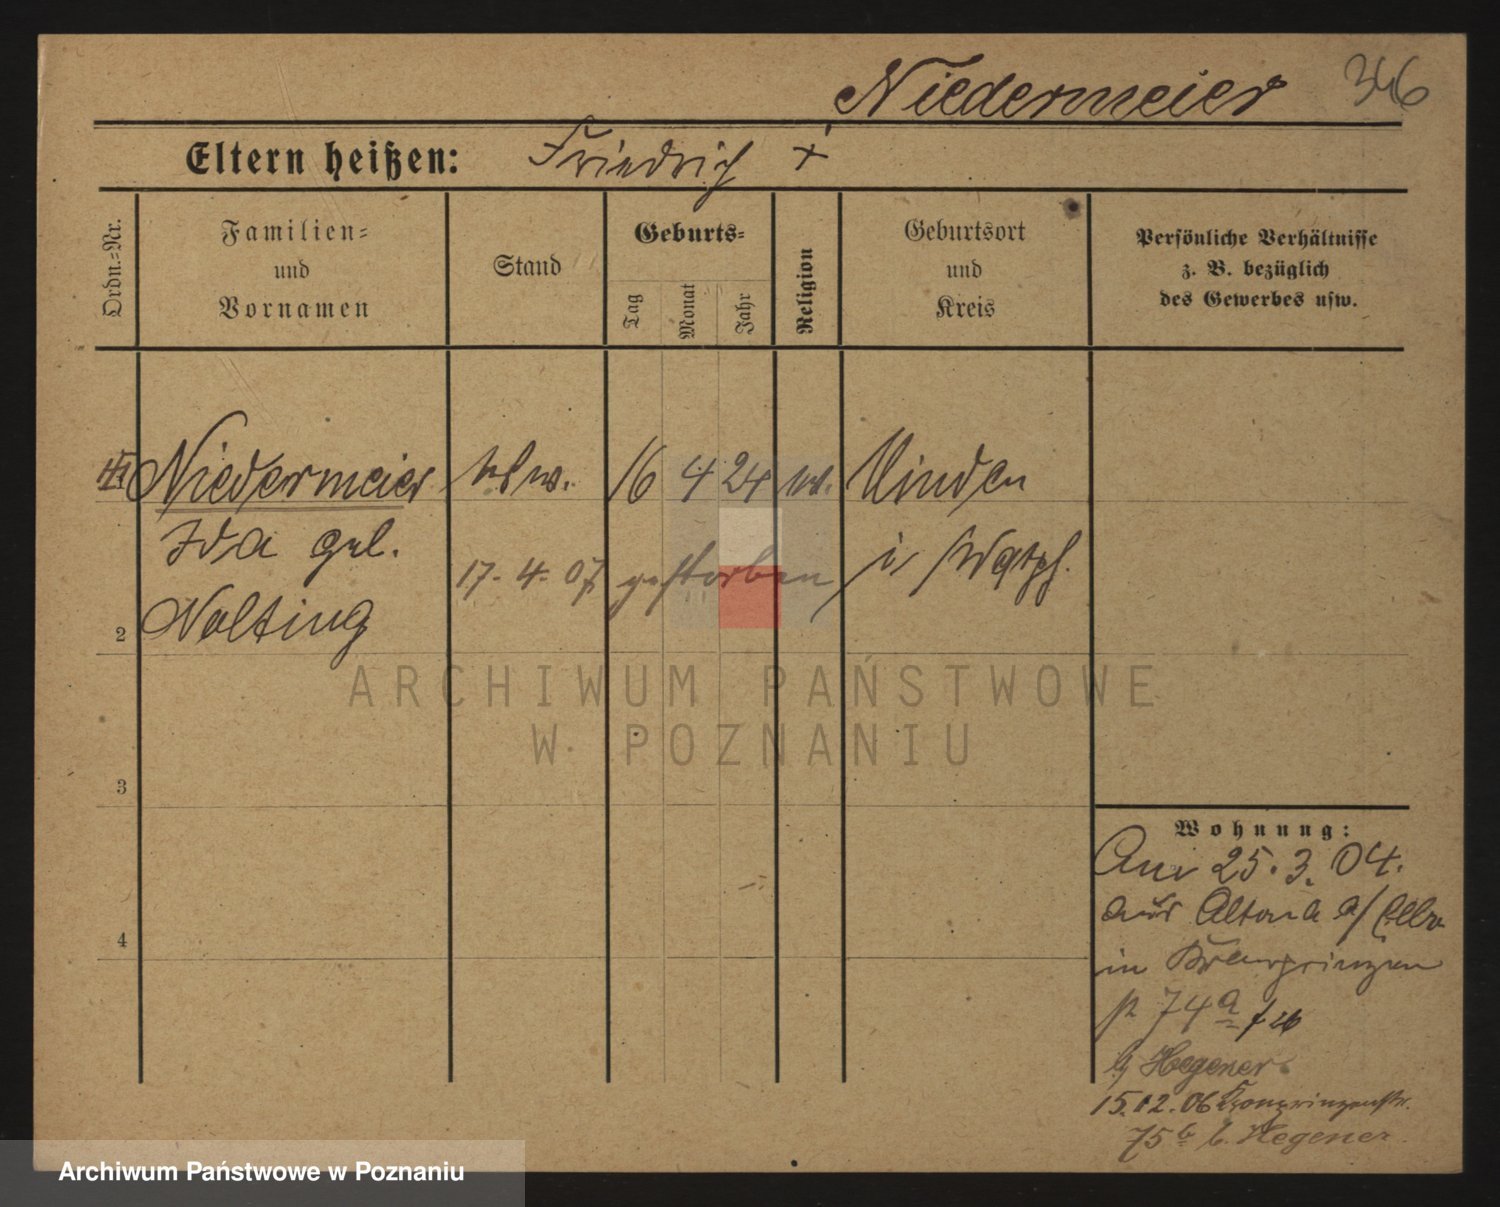 Niedermeier 346
Eltern heißen: Friedrich +
Ordn.-Nr.
Familien- und Vornamen
Stand
Geburts-
Tag Monat Jahr
Religion
Geburtsort und Kreis
Persönliche Verhältnisse z. B. bezüglich des Gewerbes usw.
Niedermeier Ww. 16 4 24 ev. Minden
Ida geb. i/ Westph.
17. 4. 07 gestorben
2 Nolting
3
4
Wohnung:
Am 25. 3. 04.
aus Altona a/ Elbe
in Kronprinzen
74a
b/ Hegener
15.12.06 Kronprinzenstr.
75b b. Hegener.
ARCHIWUM PAŃSTWOWE
W POZNANIU
Archiwum Państwowe w Poznaniu